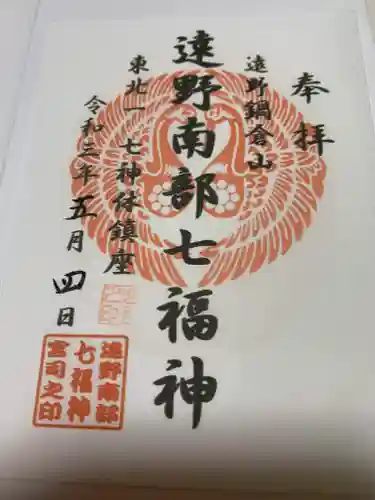 奉拝
遠野鍋倉山
遠野南部七福神
東北一七神体鎮座
令和三年五月四日
遠野南部
七福神
宮司之印